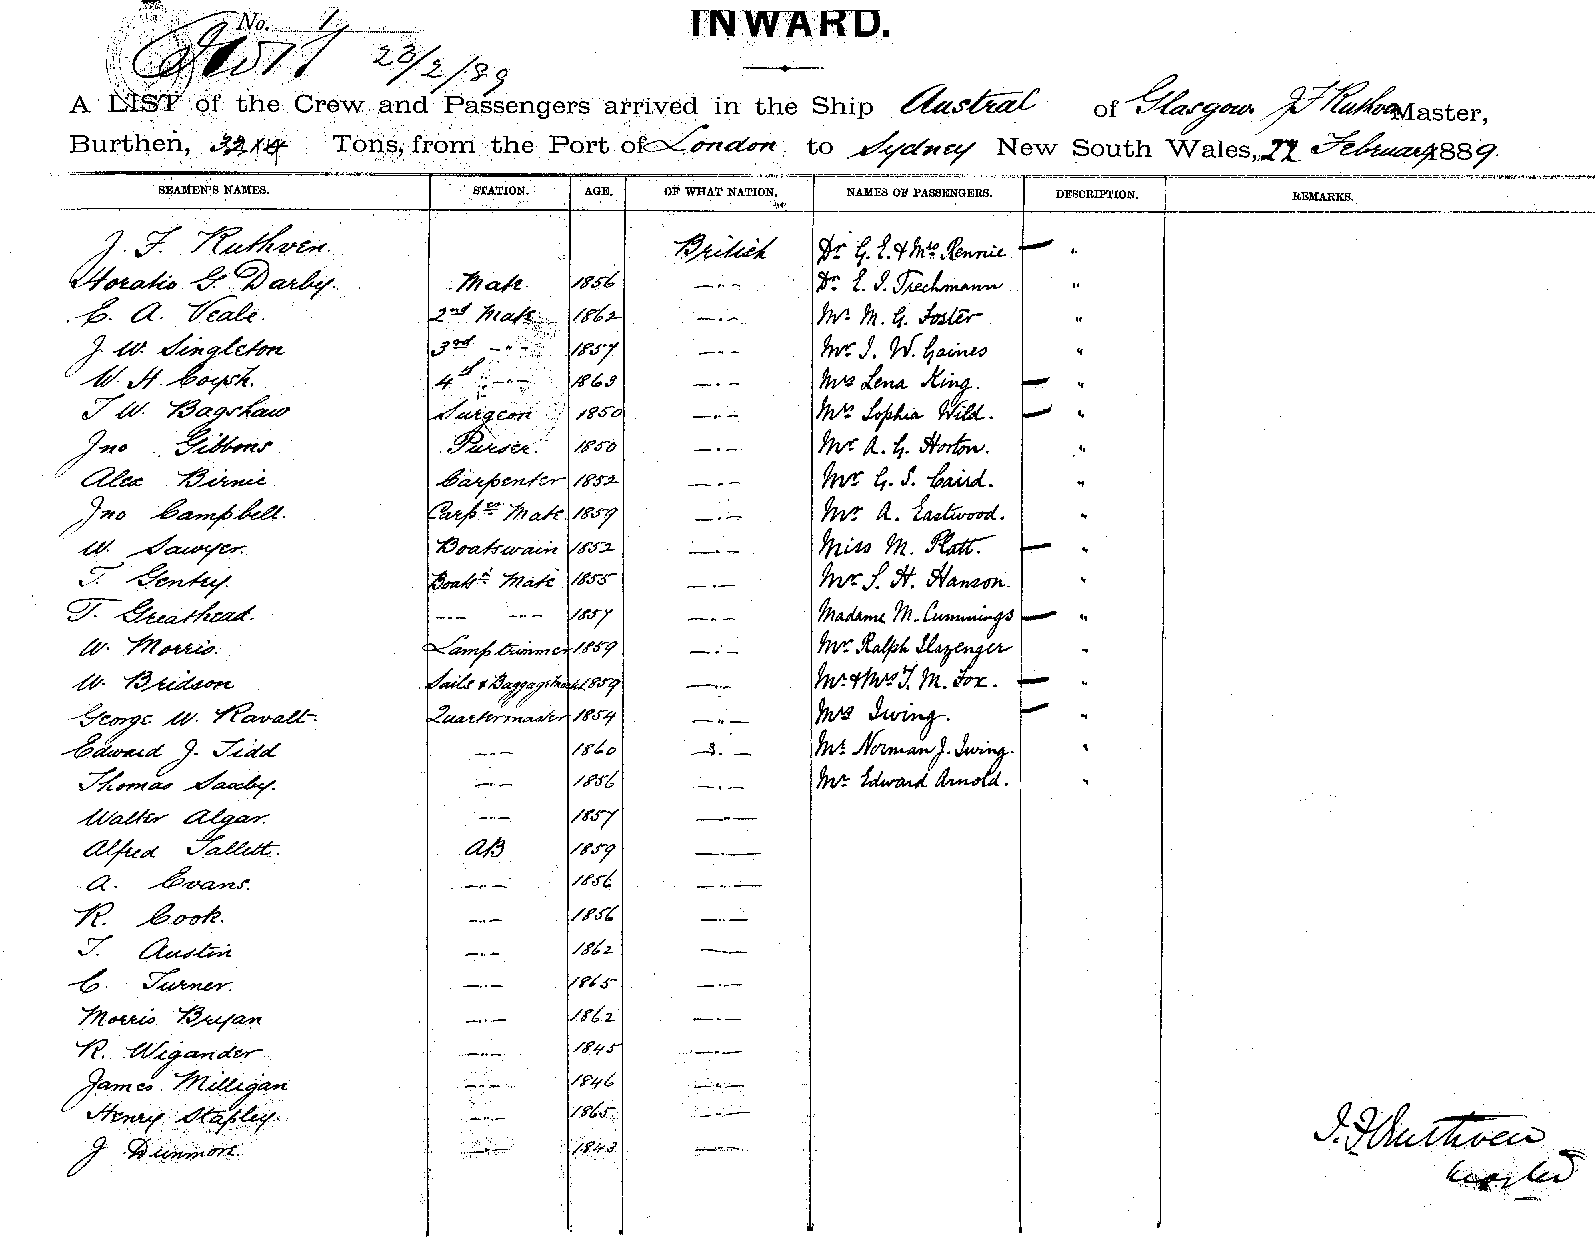 INWARD.
No. 1
23/2/89
A LIST of the Crew and Passengers arrived in the Ship Austral of Glasgow J F Ruthven Master,
Burthen, 3214 Tons, from the Port of London to Sydney New South Wales, 22 February 1889.
SEAMEN'S NAMES. STATION. AGE. OF WHAT NATION. NAMES OF PASSENGERS. DESCRIPTION. REMARKS.
J. F. Ruthven. British Dr G. E. & Mrs Rennie — "
Horatio G. Darby. Mate 1856 —"— Dr. E. I. Trechmann "
C. A. Veale. 2nd Mate 1862 —"— Mr M. G. Foster "
J. W. Singleton 3rd —"— 1857 —"— Mr. I. W. Gaines "
W. H. Coysh. 4th —"— 1863 —"— Mrs Lena King. — "
T W. Bagshaw Surgeon 1850 —"— Mrs Sophia Wild. — "
Jno Gibbons Purser. 1850 —"— Mr A. G. Horton. "
Alex Birnie Carpenter 1852 —"— Mr. G. S. Caird. "
Jno Campbell. Carprs Mate 1859 —"— Mr. A. Eastwood. "
W. Sawyer. Boatswain 1852 —"— Miss M. Platt. — "
T. Gentry. Boatsn Mate 1855 —"— Mr S. H. Hanson. "
T. Greathead. —"— —"— 1857 —"— Madame M. Cummings — "
W. Morris. Lamptrimmer 1859 —"— Mr. Ralph Slazenger "
W. Bridson Sails & Baggage 1859 —"— Mr. & Mrs T. M. Fox. — "
George W. Ravalt. Quartermaster 1854 —"— Mrs Twing. — "
Edward J. Tidd —"— 1860 —"— Mr. Norman J. Twing. "
Thomas Saxby. —"— 1856 —"— Mr. Edward Arnold. "
Walter Algar. —"— 1857 —"—
Alfred Tallett. AB 1859 —"—
A. Evans. —"— 1856 —"—
R. Cook. —"— 1856 —"—
T. Austin —"— 1862 —"—
C. Turner. —"— 1865 —"—
Morris Bryan —"— 1862 —"—
R. Wigander —"— 1845 —"—
James Milligan —"— 1846 —"—
Henry Stapley. —"— 1865 —"—
J Dunmore —"— 1843 —"—
J. F Ruthven
Master